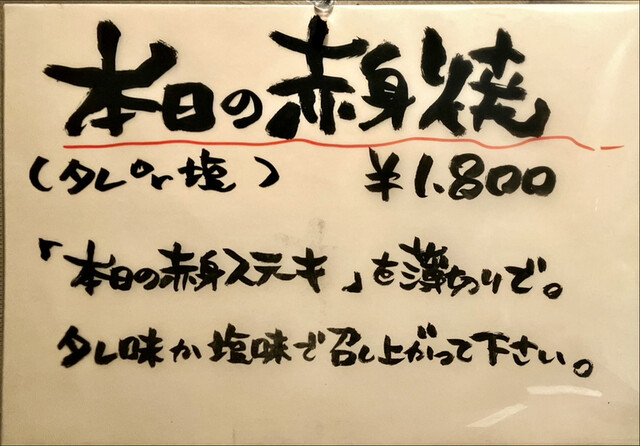 本日の赤身焼
(タレor塩) ¥1.800
「本日の赤身ステーキ」を薄切りで。
タレ味か塩味で召し上がって下さい。